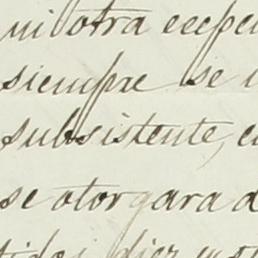 ni otra
siempre se
subsistente,
se otorgara
diez